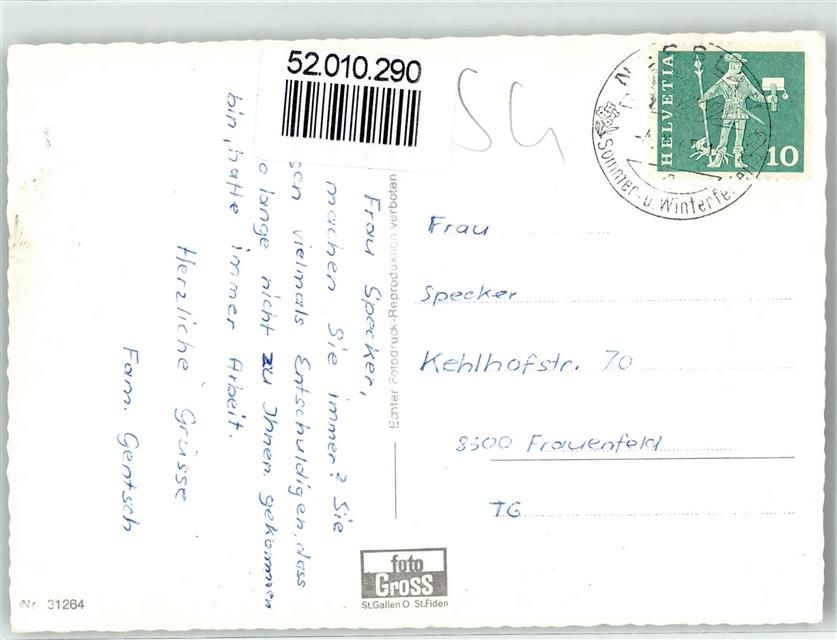 52.010.290
SG
HELVETIA
10
Sommer- u. Winterferien
Frau Specker,
machen Sie immer? Sie
sen vielmals Entschuldigen, dass
o lange nicht zu Ihnen gekommen
bin, hatte immer Arbeit.
Herzliche Grüsse
Fam. Gentsch
Echter Fotodruck-Reproduktion verboten
Frau
Specker
Kehlhofstr. 70
8500 Frauenfeld
TG
foto
GROSS
St.Gallen O St.Fiden
Nr. 31264